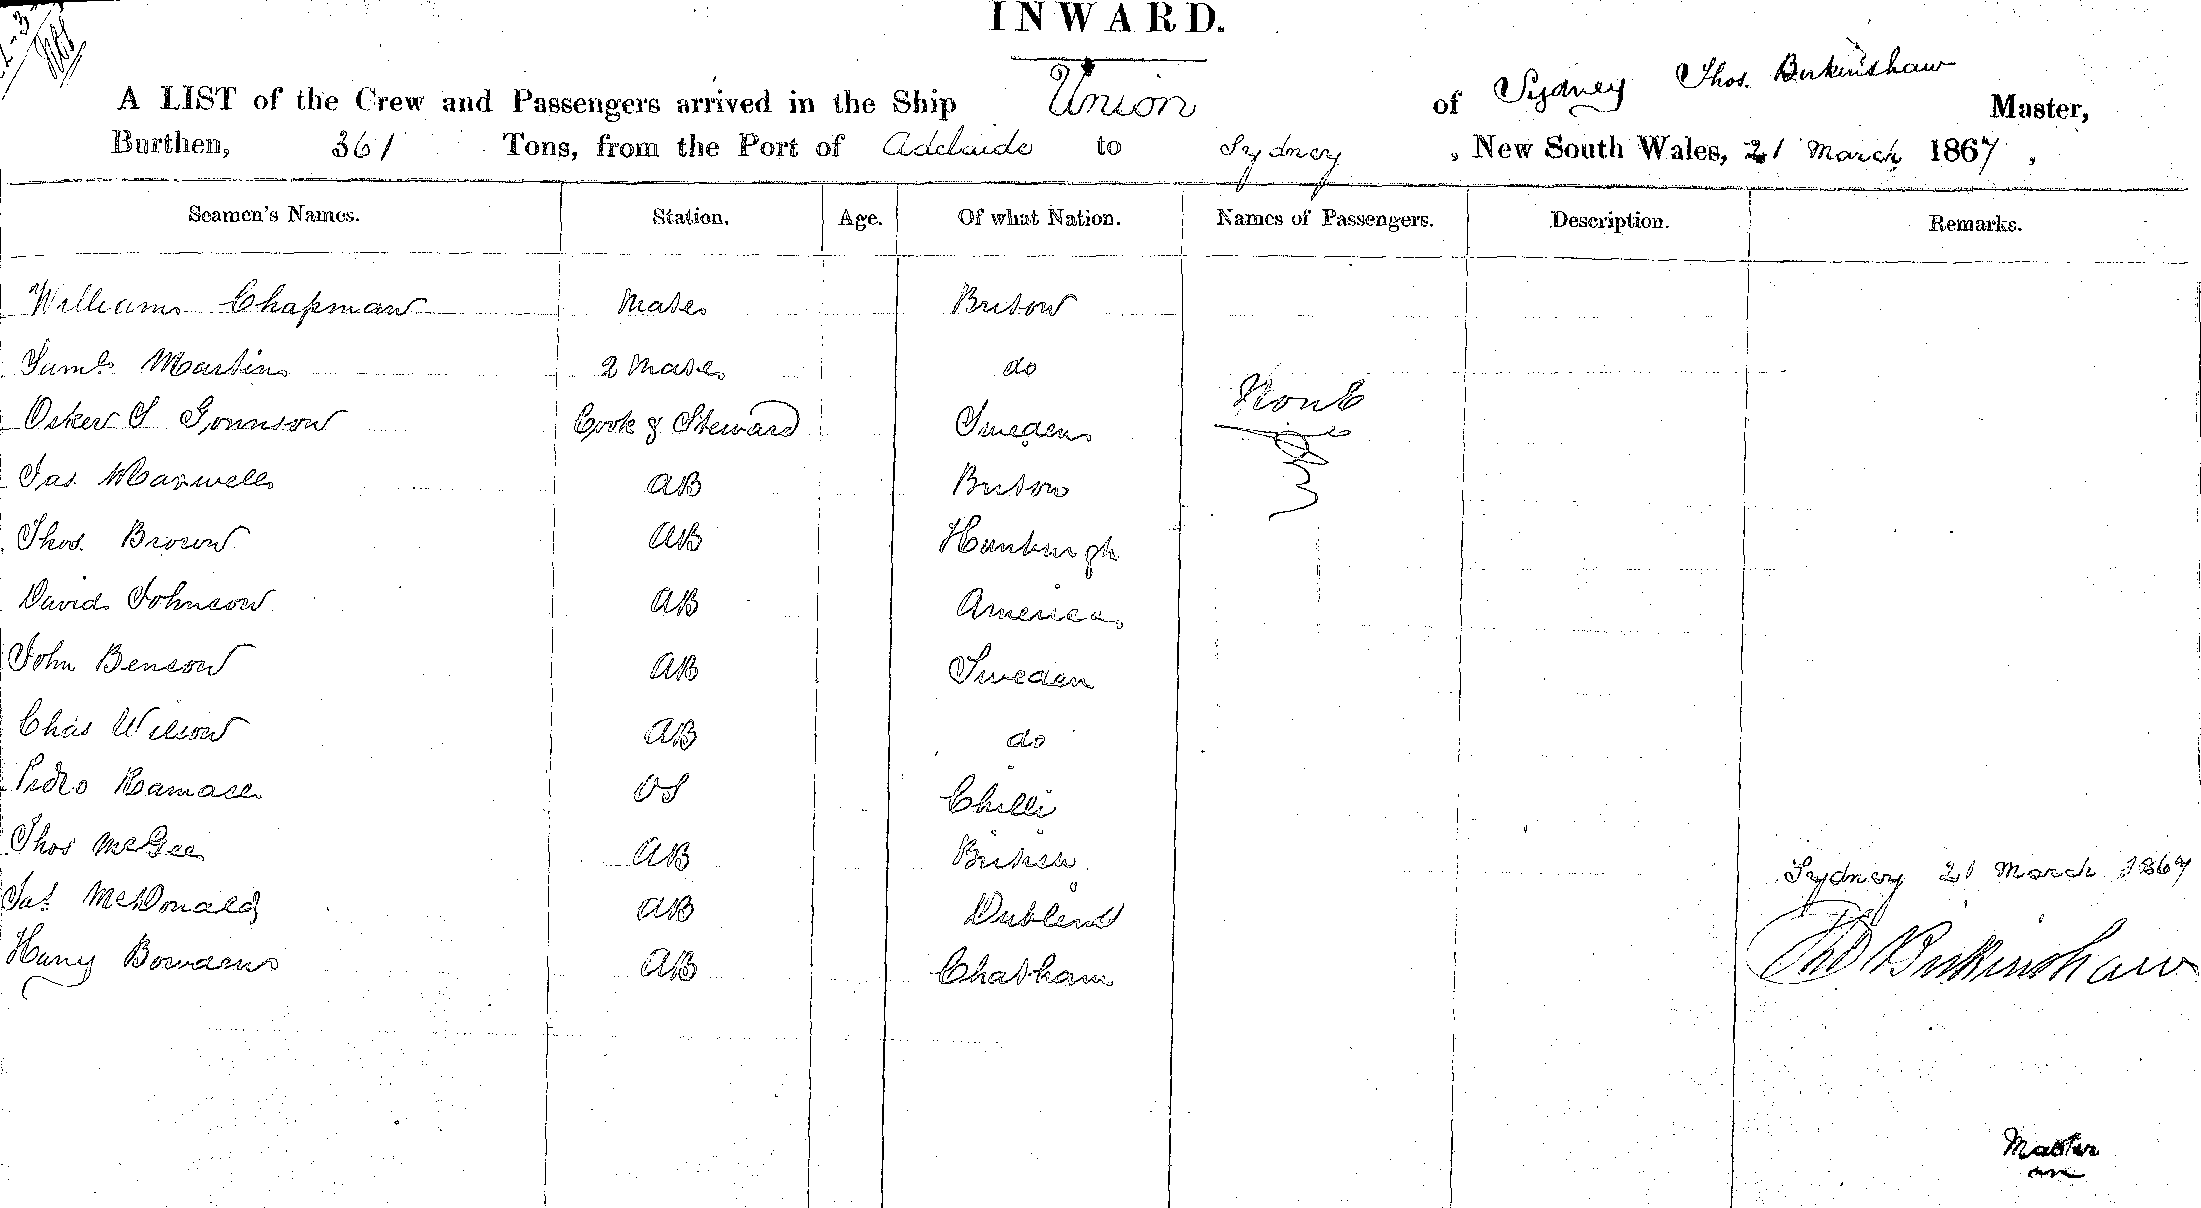 INWARD.
A LIST of the Crew and Passengers arrived in the Ship Union of Sydney Thos. Birkinshaw Master,
Burthen, 361 Tons, from the Port of Adelaide to Sydney, New South Wales, 21 March 1867,
Seamen's Names. Station. Age. Of what Nation. Names of Passengers. Description. Remarks.
William Chapman Mate Briton
Saml Martin 2 Mate do
None
Osker S Jonnson Cook & Steward Sweden
Jas. Maxwell AB Briton
Thos. Brown AB Hamburgh
David Johnson AB America
John Benson AB Sweden
Chas Wilson AB do
Pedro OS Chilli
Thos McGee AB British
Sydney 21 March 1867
Jas McDonald AB Dublin
Harry AB Chatham
Thos Birkinshaw
Master